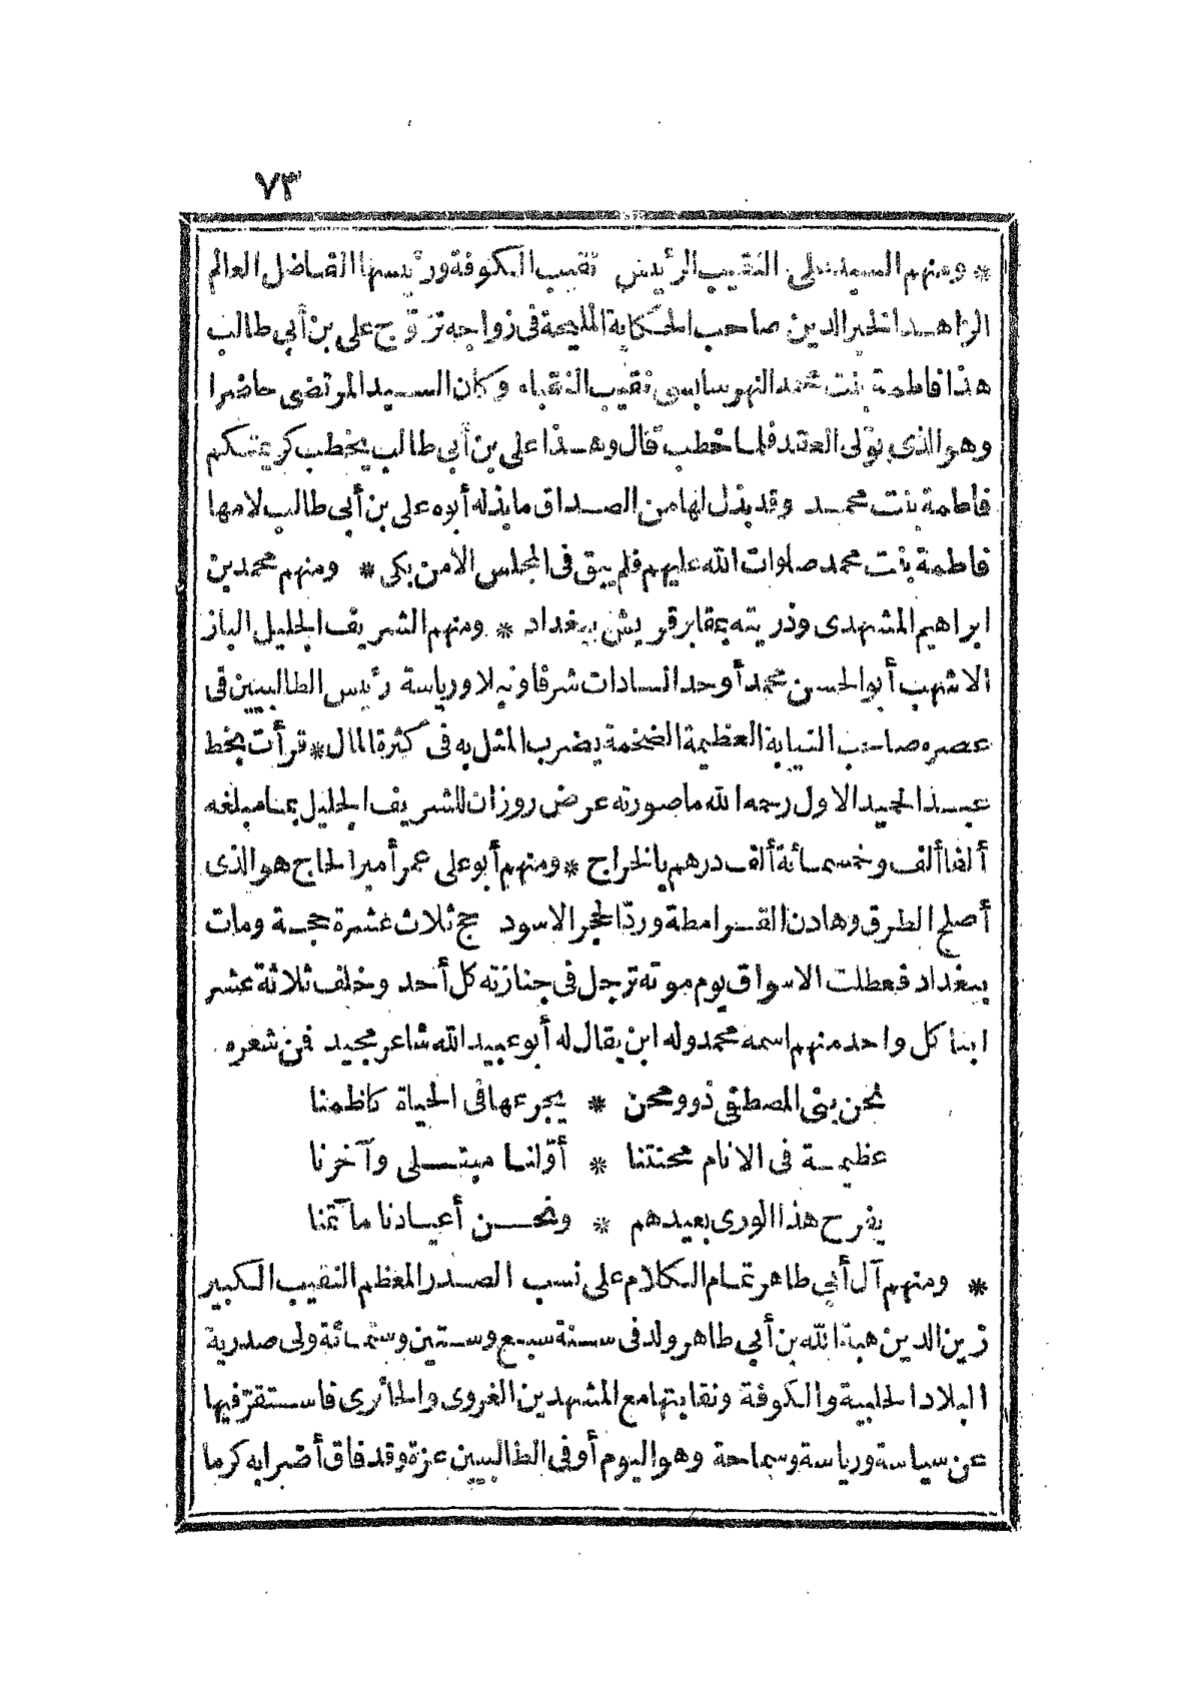 ٧٣
* ومنهم السيد على النقيب الرئيس نقيب الكوفة ورئيسها الفاضل العالم
الزاهد الخير الدين صاحب الحكاية المليحة فى زواجه تزوّج على بن أبي طالب
هذا فاطمة بنت محمد النهرسابسى نقيب النقباء وكان السيد المرتضى حاضرا
وهو الذى يولى العقد فلما خطب قال وهذا على بن أبي طالب يخطب كريمتكم
فاطمة بنت محمد وقد بذل لها من الصداق ما بذله أبوه على بن أبي طالب لامها
فاطمة بنت محمد صلوات الله عليهم فلم يبق فى المجلس الامن بكى * ومنهم محمد بن
ابراهيم المشهدى وذريته بمقابر قريش ببغداد * ومنهم الشريف الجليل الباز
الاشهب أبو الحسن محمد أوحد السادات شرفا ونبلا ورياسة رئيس الطالبيين فى
عصره صاحب النيابة العظيمة الضخمة يضرب المثل به فى كثرة المال * قرأت بخط
عبد الحميد الاول رحمه الله ما صورته عرض روزات للشريف الجليل بما مبلغه
ألفا ألف وخمسمائة ألف درهم بالخراج * ومنهم أبو على عمر أمير الحاج هو الذى
أصلح الطرق وهادن القرامطة وردّ الحجر الاسود حج ثلاث عشرة حجة ومات
ببغداد فعطلت الاسواق يوم موته ترجل فى جنازته كل أحد وخلف ثلاثة عشر
ابنا كل واحد منهم اسمه محمد وله ابن يقال له أبو عبيد الله شاعر مجيد فن شعره
نحن بنى المصطفى ذوو محن * يجرعها فى الحياة كاظمنا
عظيمة فى الانام محنتنا * أوّلنا مبتلى وآخرنا
يفرح هذا الورى بعيدهم * ونحن أعيادنا مآتمنا
* ومنهم آل أبي طاهر تمام الكلام على نسب الصدر المعظم النقيب الكبير
زين الدين هبة الله بن أبي طاهر ولد فى سنة سبع وستين وستمائة ولى صدرية
البلاد الحلبية والكوفة ونقابتها مع المشهدين الغروى والحائرى فاستقرّ فيها
عن سياسة ورياسة وسماحة وهو اليوم أوفى الطالبيين عزة وقد فاق أضرابه كرما